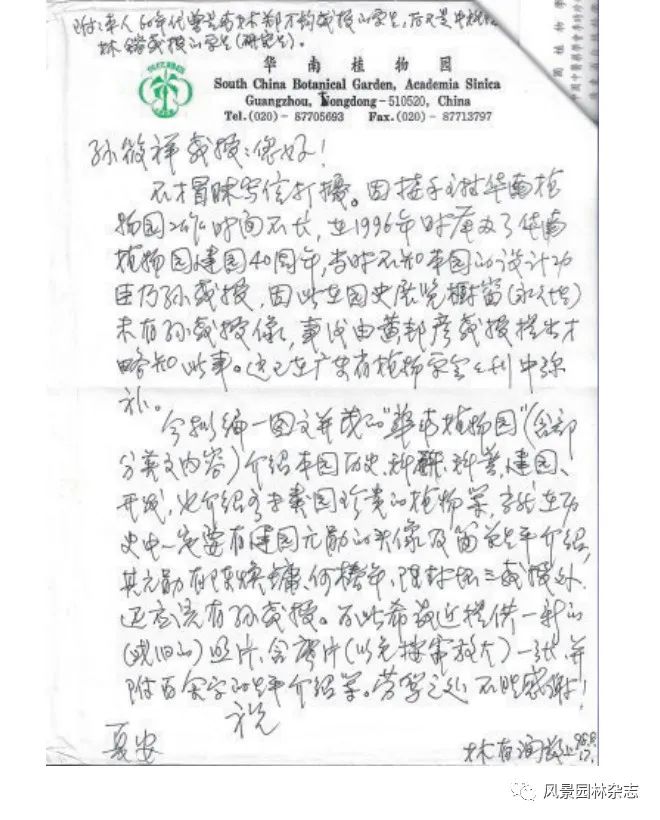 附：本人60年代曾是南林郑万钧教授的学生，后又是中科院
林镕教授的学生(研究生)。
华南植物园
South China Botanical Garden, Academia Sinica
Guangzhou, Longdong-510520, China
Tel.(020)- 87705693 Fax.(020)- 87713797
孙筱祥教授：您好！
不才冒昧写信打扰。因接手主持华南植
物园工作时间不长，在1996年时 办了华南
植物园建园40周年，当时不知本园的设计功
臣乃孙教授，因此在园史展览橱窗(永久性)
未有孙教授像，事后由黄邦彦教授提出才
略知此事。这已在广东省植物学会会刊中弥
补。
今拟编一图文并茂的"华南植物园"(含部
分英文内容)介绍本园历史、科研、科普、建园、
开放，也介绍 园珍贵的植物等， 在历
史中一定要有建园元勋的头像及简单生平介绍，
其元勋有陈焕镛、何椿年、陈封怀三教授外，
还应该有孙教授。为此希 近提供一新的
(或旧的)照片、含底片(以 放大)一张，并
附百余字的生平介绍等。劳驾之处 不胜感谢！
祝
夏安
林有润敬上 98.8.17.
风景园林杂志